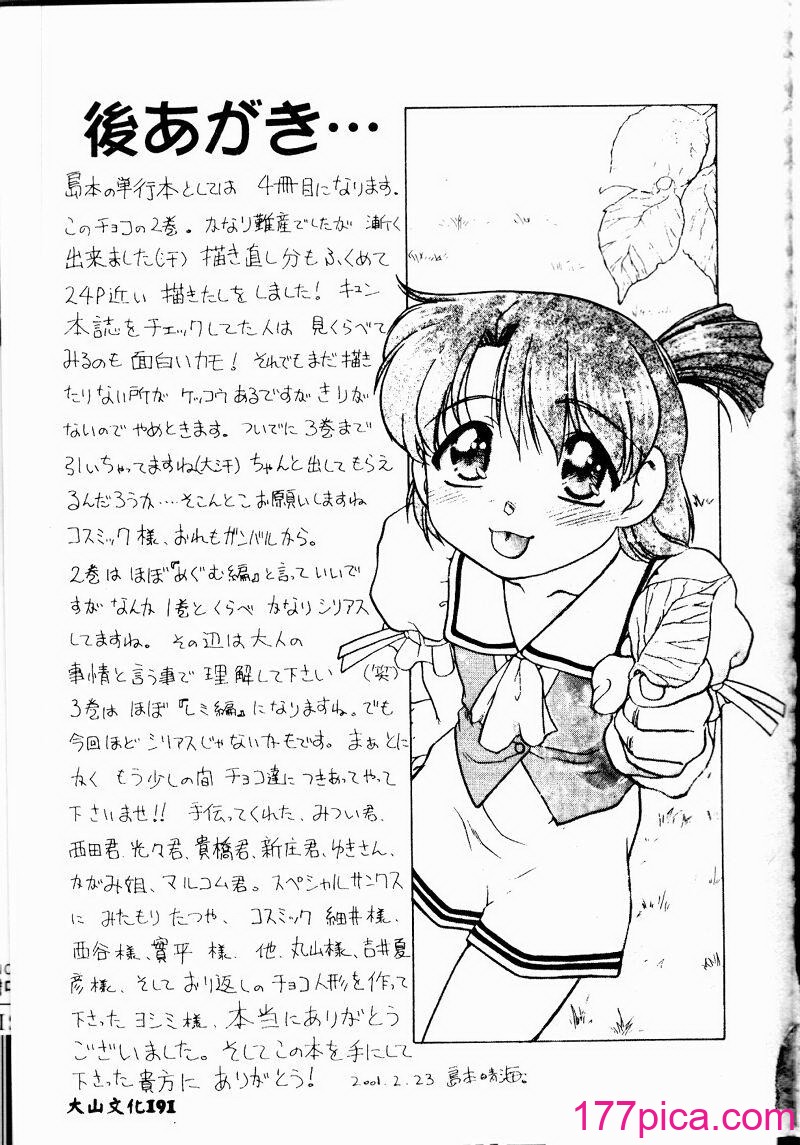 後あがき…
島本の単行本としては 4冊目になります.
このチョコの2巻。かなり難産でしたが 漸く
出来ました(汗) 描き直し分もふくめて
24P近い 描きたしをしました! キュン
本誌をチェックしてた人は 見くらべて
みるのも 面白いカモ! それでもまだ描き
たりない所が ケッコウ あるですが きりが
ないので やめときます。ついでに 3巻まで
引いちゃってますね(大汗) ちゃんと出して もらえ
るんだろうか…そこんとこ お願いしますね
コスミック様、おれもガンバルから。
2巻は ほぼ『めぐむ編』と言っていいで
すが なんか 1巻とくらべ かなりシリアス
してますね。その辺は大人の
事情と言う事で 理解して下さい (笑)
3巻は ほぼ『レミ編』になりますね。でも
今回ほど シリアスじゃないかもです。まぁとに
かく もう少しの間 チョコ達に つきあってやって
下さいませ!! 手伝ってくれた、みつい君、
西田君、光々君、貴橋君、新庄君、ゆきさん、
ながみ姐、マルコム君。スペシャルサンクス
に みたもりたつや、コスミック 細井様、
西谷様、實平 様. 他、丸山様、吉井夏
彦様、そして おり返しの チョコ人形を 作って
下さった ヨシミ様、本当にありがとう
ございました。そしてこの本を手にして
下さった 貴方に ありがとう! 2001.2.23 島本晴海。
大山文化191
177pica.com